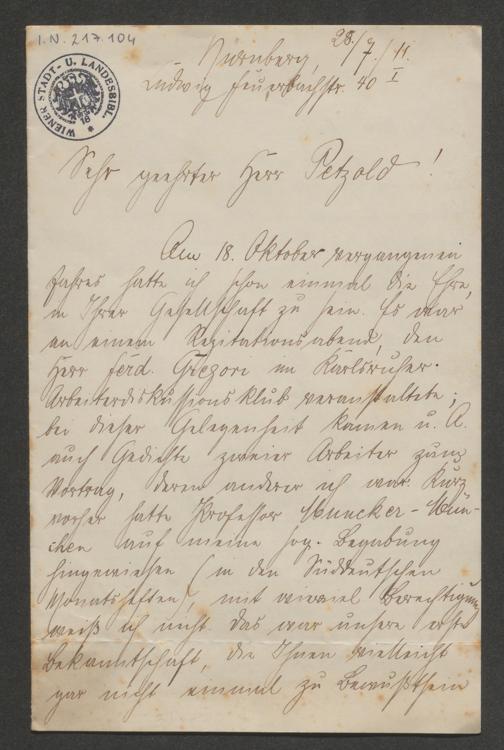 I.N. 217.104
WIENER STADT- U. LANDESBIBL.
Nürnberg, 28./7./11.
Ludwig Feuerbachstr. 40 I
Sehr geehrter Herr Petzold!
Am 18. Oktober vergangenen
Jahres hatte ich schon einmal die Ehre,
in Ihrer Gesellschaft zu sein. Es war
an einem Rezitationsabend, den
Herr Ferd. Gregori im Karlsruher
Arbeiterdiskussionsklub veranstaltete;
bei dieser Gelegenheit kamen u. A.
auch Gedichte zweier Arbeiter zum
Vortrag, deren anderer ich war. Kurz
vorher hatte Professor Muncker-Mün-
chen auf meine sog. Begabung
hingewiesen (in den Süddeutschen
Monatsheften), mit wieviel Berechtigung
weiß ich nicht. Das war unsere erste
Bekanntschaft, die Ihnen vielleicht
gar nicht einmal zu Bewußtsein